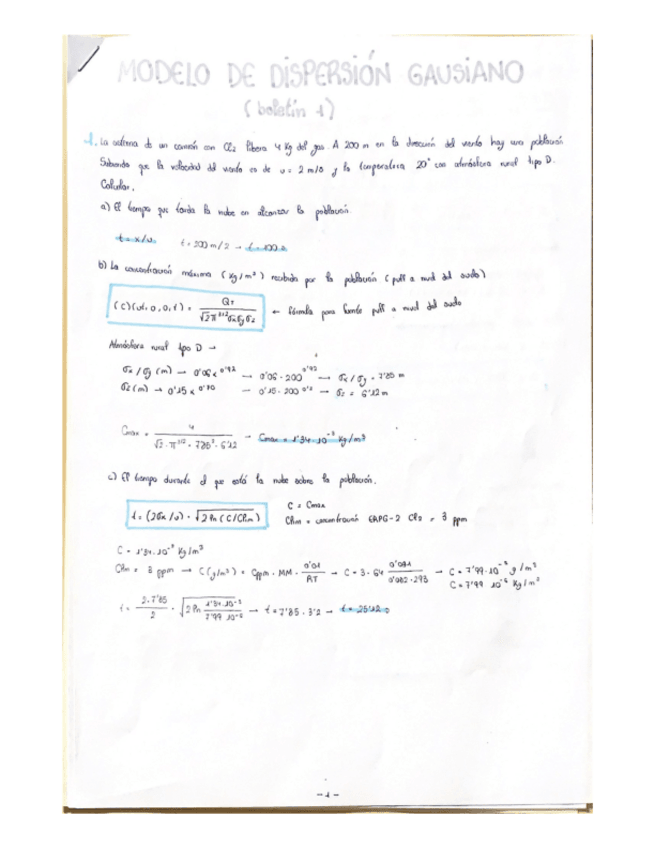 MODELO DE DISPERSIÓN GAUSIANO
(boletín 1)
1. La cisterna de un camión con Cl₂ libera 4 Kg del gas. A 200 m en la dirección del viento hay una población
Sabiendo que la velocidad del viento es de u = 2 m/s y la temperatura 20° con atmósfera rural tipo D.
Calcular.
a) El tiempo que tarda la nube en alcanzar la población
t = x/u. t = 200 m/2 → t = 100 s
b) La concentración máxima (Kg/m³) recibida por la población (puff a nivel del suelo)
(C)(ut, 0, 0, t) = QT / √2 π^3/2 σx σy σz ← fórmula para fuente puff a nivel del suelo
Atmósfera rural tipo D →
σx / σy (m) → 0'06 x^0'92 → 0'06 · 200^0'92 → σx / σy = 7'85 m
σz (m) → 0'15 x^0'70 → 0'15 · 200 → σz = 6'12 m
Cmax = 4 / √2 · π^3/2 · 7'85² · 6'12 → Cmax = 1'34 · 10⁻³ Kg/m³
c) El tiempo durante el que está la nube sobre la población.
t = (2σx / u) · √2 ln (C/Clim) C = Cmax
Clim = concentración ERPG-2 Cl₂ = 3 ppm
C = 1'34 · 10⁻³ Kg/m³
Clim = 3 ppm → C (g/m³) = Cppm · MM · 0'001 / RT → C = 3 · 64 0'001 / 0'082 · 293 → C = 7'99 · 10⁻³ g/m³
C = 7'99 · 10⁻⁶ Kg/m³
t = 2 · 7'85 / 2 · √2 ln 1'34 · 10⁻³ / 7'99 · 10⁻⁶ → t = 7'85 · 3'2 → t = 25'12 s
- 1 -